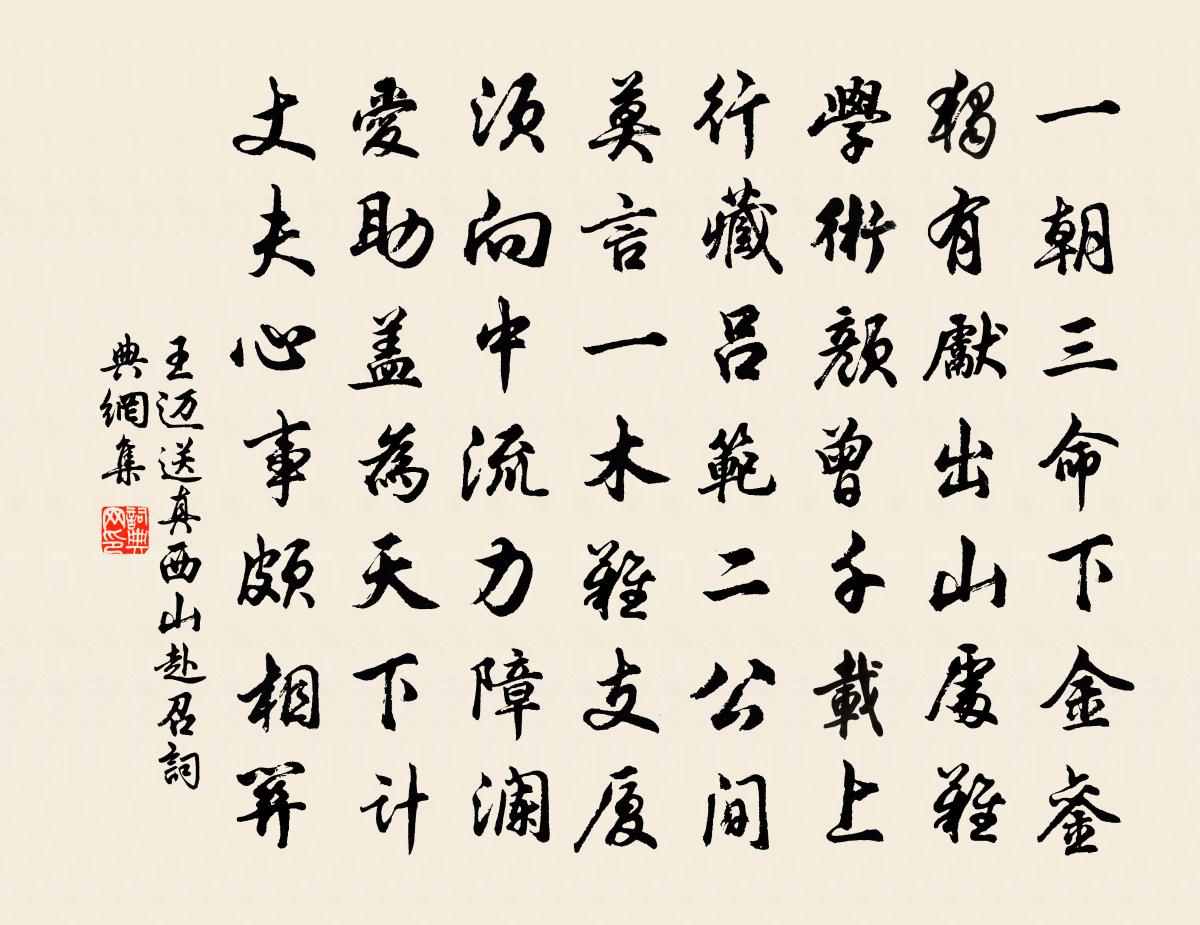 一朝三命下金銮
獨有獻出山處難
學術顏曾千載上
行藏呂範二公間
莫言一木難支厦
須向中流力障瀾
愛助盖為天下计
丈夫心事頗相關
王迈送真西山赴召詞
典網集
詞典网印